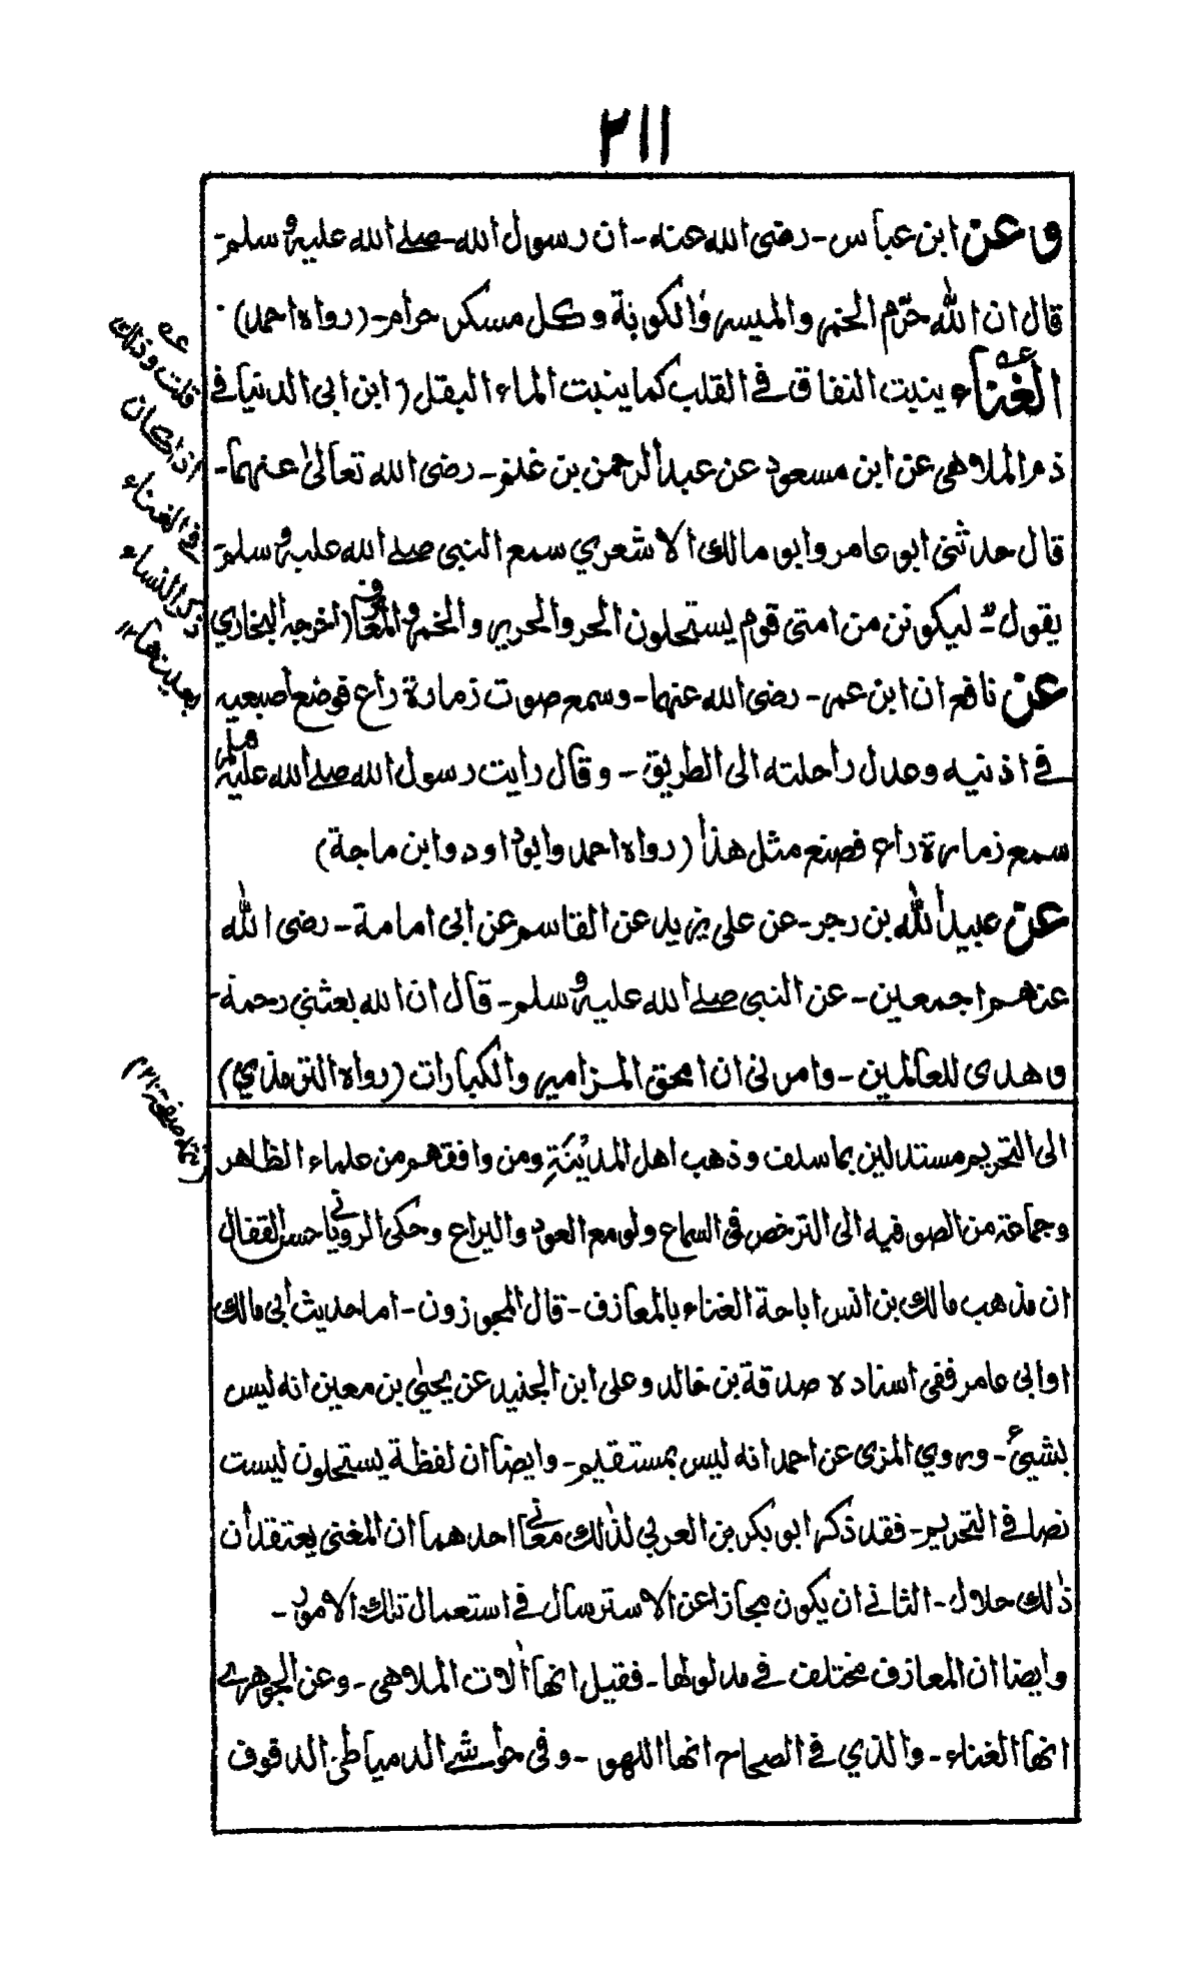 ۲۱۱
وعن ابن عباس - رضی الله عنه - ان رسول الله - صلے الله علیه و سلم -
قال ان الله حرّم الخمر والمیسر والکوبة وکل مسکر حرام - (رواه احمد)
الغناء ینبت النفاق فے القلب کما ینبت الماء البقل (ابن ابی الدنیا فے
ذم الملاهی عن ابن مسعود عن عبدالرحمن بن غنم - رضی الله تعالیٰ عنهما -
قال حدثنی ابو عامر وابو مالك الاشعري سمع النبی صلے الله علیه و سلم -
یقول - لیکونن من امتی قوم یستحلون الحر والحریر والخمر والمعازف (اخرجه البخاري
عن نافع ان ابن عمر - رضی الله عنهما - وسمع صوت زمارة راع فوضع اصبعیه
فے اذنیه وعدل راحلته الی الطریق - وقال رایت رسول الله صلے الله علیه وسلم
سمع زمارة راع فصنع مثل هذا (رواه احمد وابوداود وابن ماجة)
عن عبیدالله بن رجر - عن علی یزید عن القاسم عن ابی امامة - رضی الله
عنهم اجمعین - عن النبی صلے الله علیه و سلم - قال ان الله بعثنی رحمة -
وهدی للعالمین - وامرنی ان امحق المزامیر والکبارات (رواه الترمذي)
الی التحریم مستدلین بما سلف وذهب اهل المدینة ومن وافقهم من علماء الظاهر
وجماعة من الصوفیه الی الترخص فی السماع ولو مع العود والیراع وحکی الرویانے حسن القفال
ان مذهب مالك بن انس اباحة الغناء بالمعازف - قال المجوزون - اما حدیث ابی مالك
او ابی عامر ففی اسناده صدقة بن خالد وعلی ابن الجنید عن یحییٰ بن معین انه لیس
بشیئ - وروي المزی عن احمد انه لیس بمستقیم - وایضا ان لفظة یستحلون لیست
نصا فے التحریم - فقد ذکر ابو بکر بن العربي لذلك معانے احدهما ان المغنی یعتقد ان
ذلك حلال - الثانے ان یکون مجازا عن الاسترسال فے استعمال تلك الامور -
وایضا ان المعازف مختلف فے مدلولها - فقیل انها الات الملاهی - وعن الجوهرے
انها الغناء - والذي فے الصحاح انها اللهو - وفی حواشے الدمیاطی الدفوف
عه
قلت وذلك
اذا کان
فے الغناء
ذکر النساء
بعینها ۱۲
(تتمه صفحة ۲۱۰)